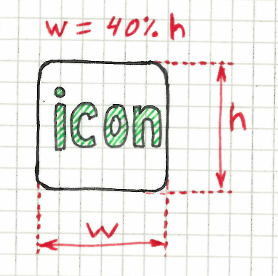 w = 40% h
icon
h
w